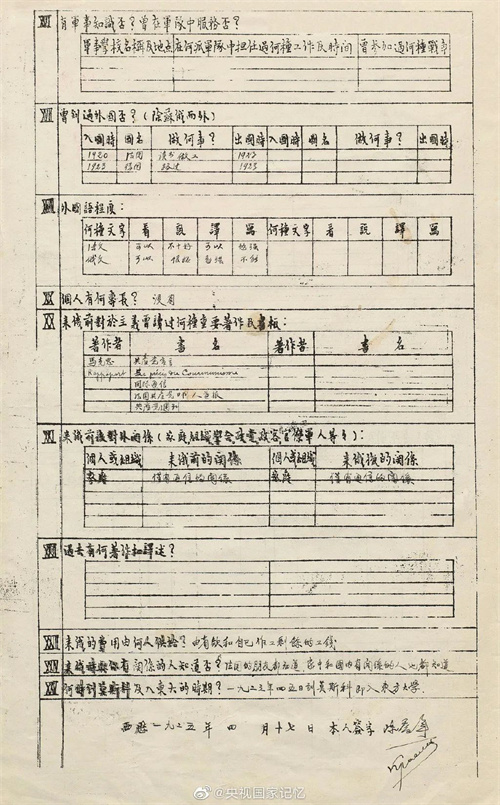 XVI 有軍事知識否？曾在軍隊中服務否？
軍事學校名稱及地点 在何派軍隊中担任過何種工作及時间 曾参加過何種戰争
XVII 曾到過外国否？（除蘇俄而外）
入國時 國名 做何事？ 出國時 入國時 國名 做何事？ 出國時
1920 法国 讀书做工 1923
1923 德国 路过 1923
XVIII 外國語程度：
何種文字 看 説 譯 寫 何種文字 看 説 譯 寫
法文 可以 不十好 可以 勉强
俄文 可以
XIX 個人有何專長？ 没有
XX 来俄前對於主義曾讀过何種重要著作及書報：
著作者 書名 著作者 書名
馬克思 共產党宣言
Rappoport Précis du Communisme
国际通信
法国共產党日报人道报
共產党週刊
XXI 来俄前後對外関係（家庭組織學会政党政客官僚軍人等等）：
個人或組織 来俄前的関係 個人或組織 来俄後的関係
家庭 僅有通信的関係 家庭 僅有通信的関係
XXII 過去有何著作和譯述？
来俄的費用由何人供給？ 由有飲和自己作工剩餘的工錢
来俄時與你有関係的人知道否？ 法国的朋友都知道，家中和国内有関係的人也都知道
何時到莫斯科及入東大的時期？ 一九二三年四五日到莫斯科即入東方大学。
西歷一九二五年 四月十七日 本人簽字
@央视国家记忆